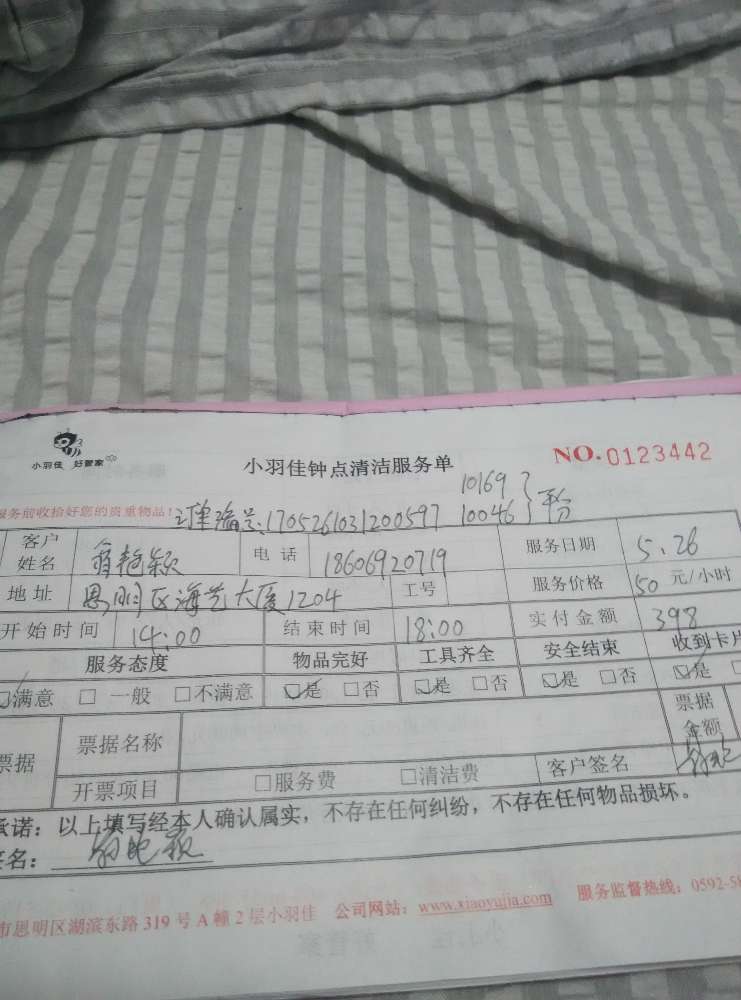 小羽佳 好管家
小羽佳钟点清洁服务单
NO.0123442
服务前收拾好您的贵重物品!
订单编号:1705261031200597
10169
10046
平分
客户姓名
电话 18606920719
服务日期 5.26
地址 思明区海芝大厦1204
工号
服务价格 50元/小时
开始时间 14:00
结束时间 18:00
实付金额 398
服务态度 物品完好 工具齐全 安全结束 收到卡片
满意 □一般 □不满意 是 □否 是 □否 是 □否 是
票据
票据名称
票据金额
开票项目 □服务费 □清洁费 客户签名
承诺:以上填写经本人确认属实,不存在任何纠纷,不存在任何物品损坏。
签名:
市思明区湖滨东路319号A幢2层小羽佳 公司网站:www.xiaoyujia.com 服务监督热线:0592-58